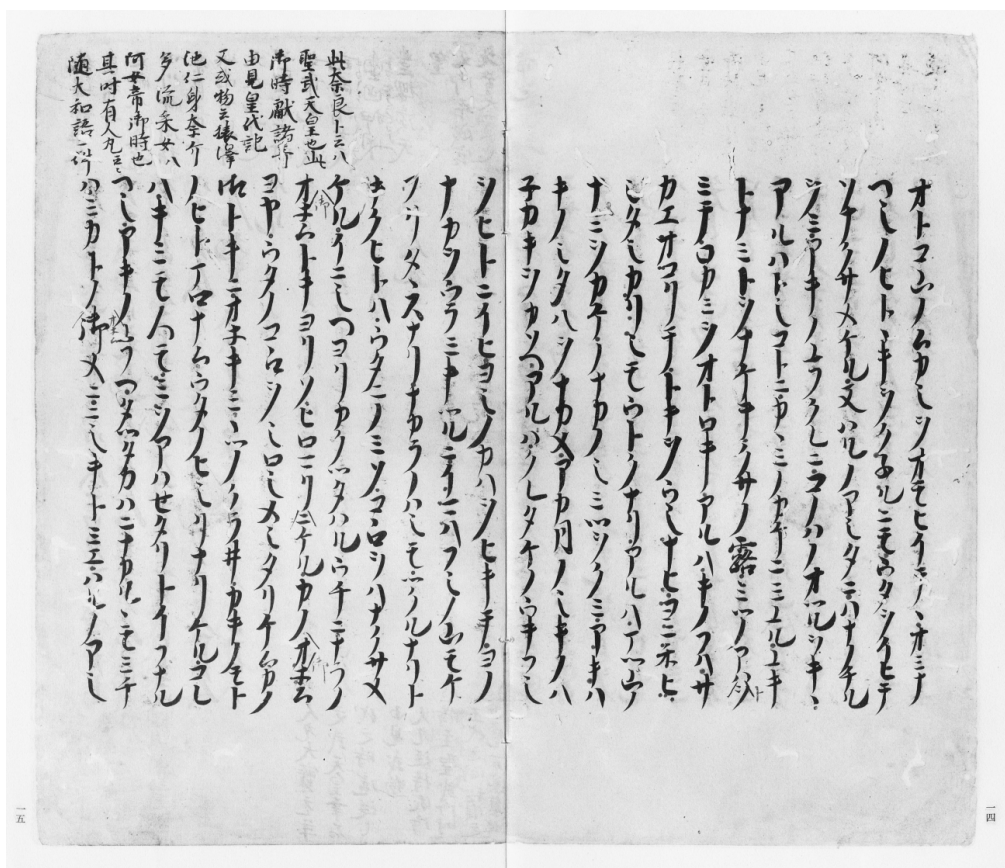 オトコ山ノムカシヲオモヒイテヽオミナ
ヘシノヒトヽキヲクネルニモウタヲイヒテ
ソナクサメケル又ハルノアシタニハナノチル
ヲミアキノユフクレニコノハノオツルヲキヽ
アルハトシコトニカヽミノカケニミエルユキ
トナミトヲナケキクサノ露ミツノアハヲ
ミテワカミヲオトロキアルハキノフハサ
カエオコリテトキヲウシナヒヨニワヒ
シタシカリシモウトクナリアルハマツ山ノ
ナミヲカケノナカノシミツヲクミアキハ
キノシタハヲナカメアカ月ノシキノハ
子カキヲカソヘアルハクレタケノウキフシ
ヲヒトニイヒヨシノカハヲヒキテヨノ
ナカヲウラミキツルニイマハフシノ山モケ
フリタヽスナリナカラノハシモツクルナリト
キクヒトハウタニノミソコヽロヲハナクサメ
ケルイニシヘヨリカクツタハルウチニナラノ
オホムトキヨリソヒロマリニケルカノオホム
ヨヤウタノコヽロヲシロシメシタリケムカノ
トキニオホキミツノクラ井カキノモト
ノヒトマロナムウタノヒシリナリケルコレ
ハキミモ人モミヲアハセタリトイフナル
ヘシアキノユフヘタツタカハニナカルヽモミチ
ヲハミカトノ御メニニシキトミエハルノアシ
此奈良ト云ハ
聖武天皇也此
御時献諸兄
由見皇代記
又或物云猿澤
池仁身奈介
多流采女ハ
御時也
其時有人丸云々
随大和語
一四
一五